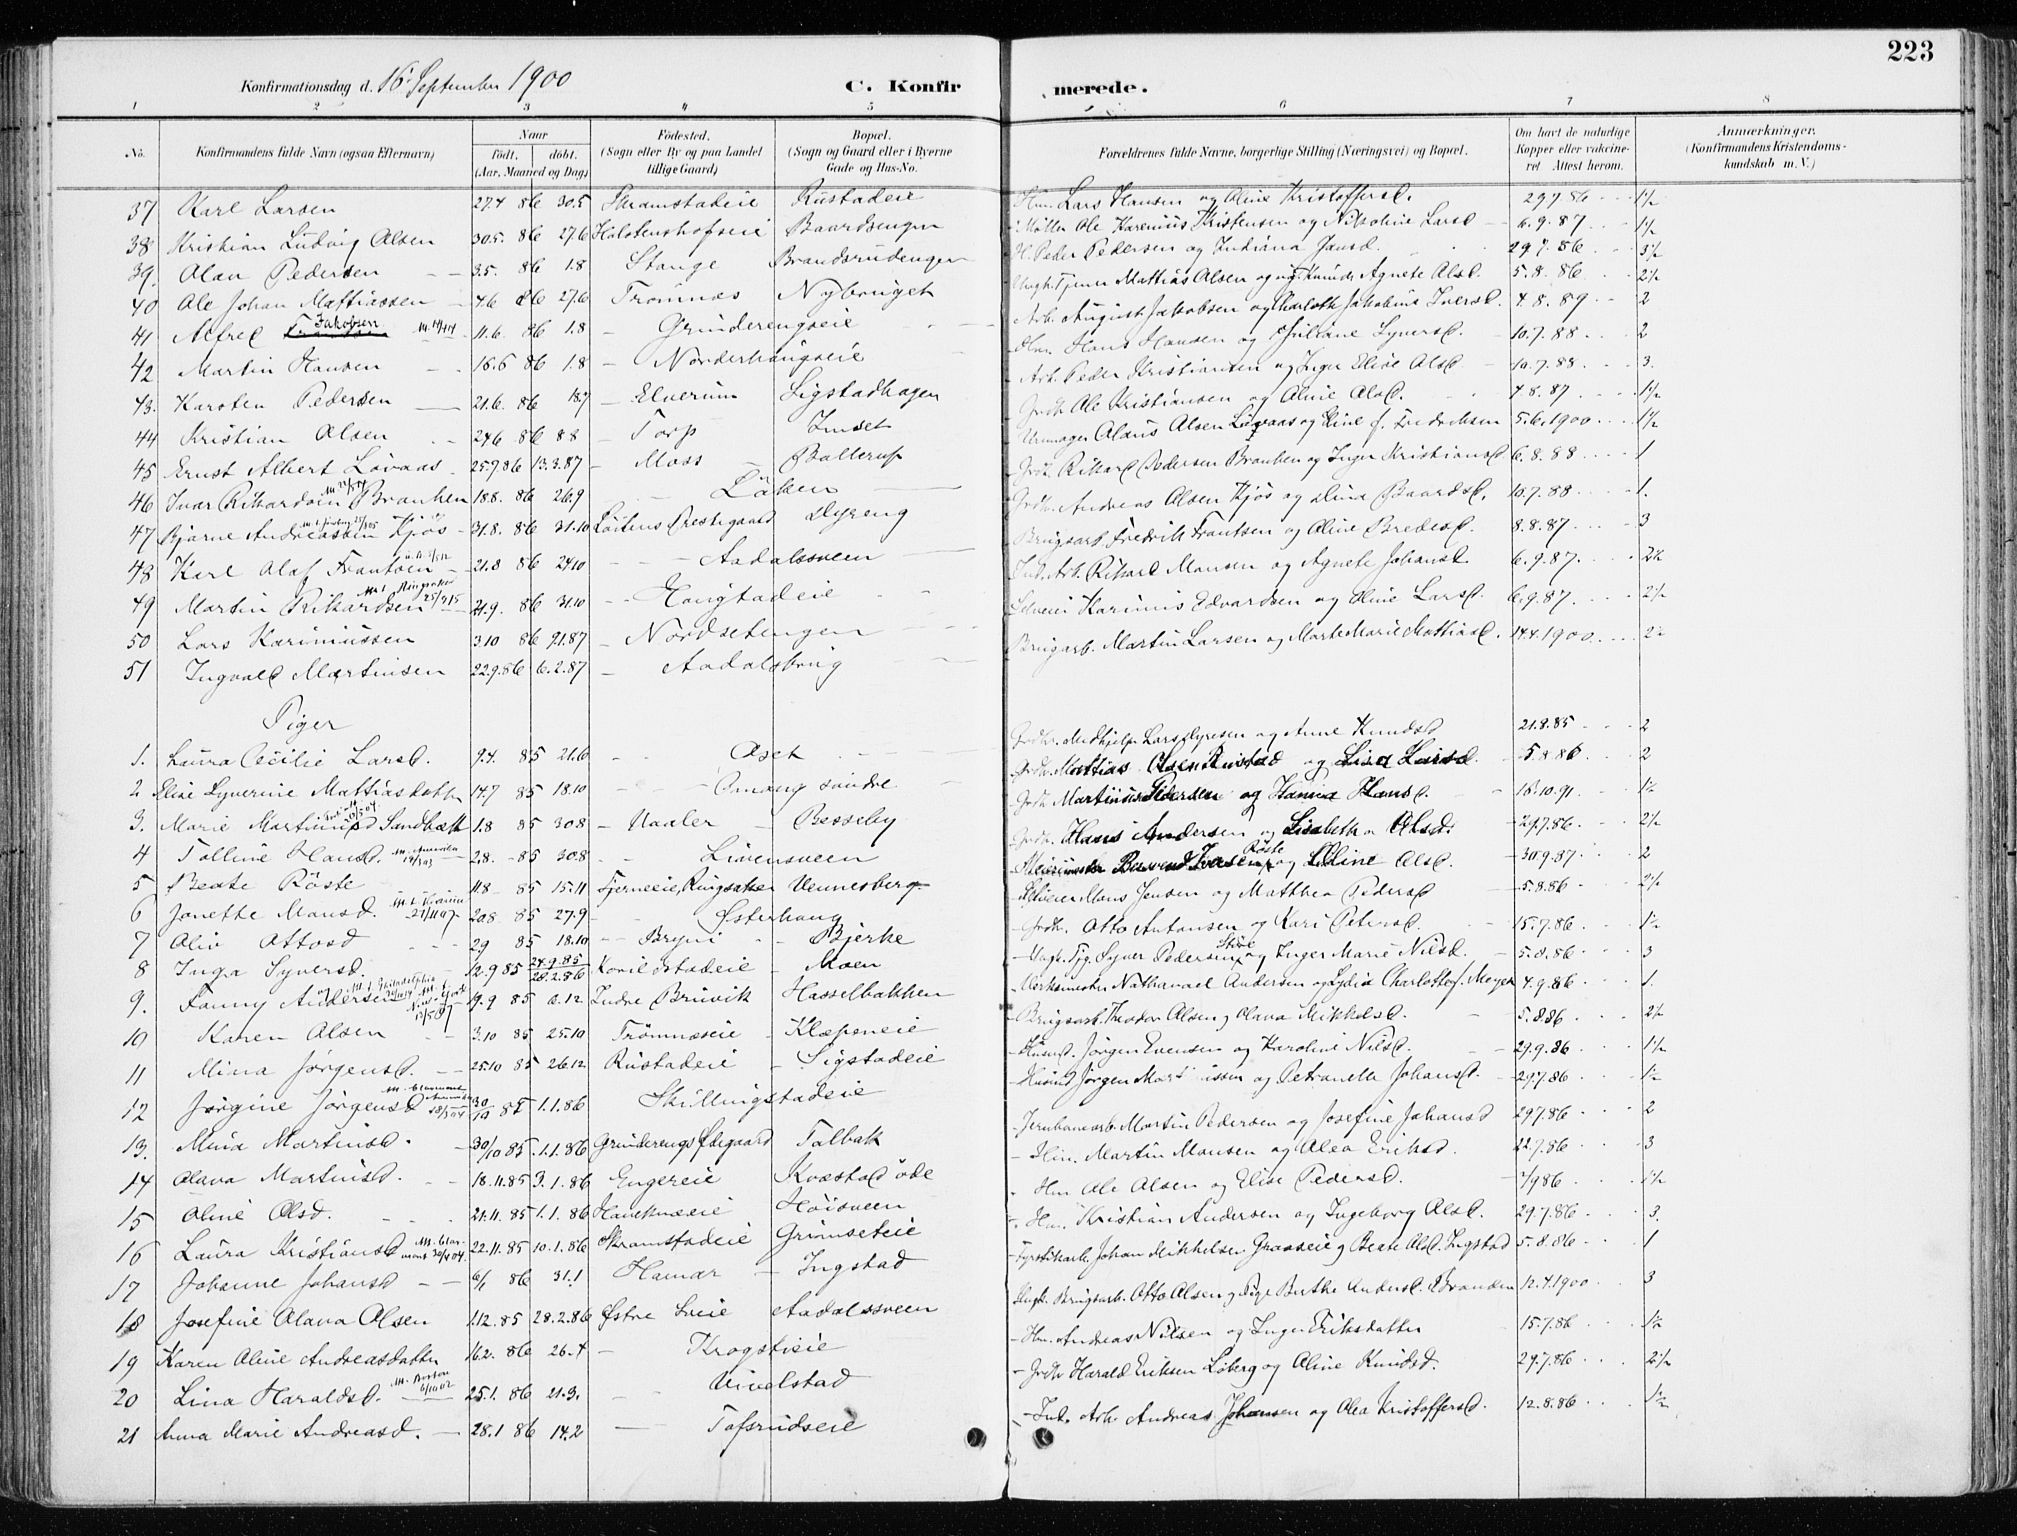 223
Konfirmationsdag d. 16 September 1900
C. Konfirmerede.
1 2 3 4 5 6 7 8
No. Konfirmandens fulde Navn (ogsaa Efternavn) Naar født. døbt. (Aar, Maaned og Dag) Fødested. (Sogn eller By og paa Landet tillige Gaard) Bopæl. (Sogn og Gaard eller i Byerne Gade og Hus-No. Forældrenes fulde Navne, borgerlige Stilling (Næringsvei) og Bopæl. Om havt de naturlige Kopper eller vakcineret Attest herom. Anmærkninger. (Konfirmandens Kristendomskundskab m. V.)
37 Karl Larsen 27.4 86 30.5 Skramstadeie Rustadeie Hm. Lars Hansen og Oline Kristoffersd. 29.7.86 1½
38 Kristian Ludvig Olsen 30.5. 86 27.6 Halstenshofseie Baardsengen Møller Ole Karenius Kristensen og Nikoline Larsd 6.9.87 1½
39. Olav Pedersen 3.5. 86 1.8 Stange Brandsrudengen H. Peder Pedersen og Indiana Jansd. 29.7.86 3½
40 Ole Johan Mattiassen 4.6 86 27.6 Trømnæs Nybruget Ungk. Tjener Mattias Olsen og Agnete Olsd. 5.8.86 2½
41 Alfred Jakobsen 11.6. 86 1.8 Grinderengseie Arb. August Jakobsen og Charlotte Jakobine Iversd. 4.8.89 2
42 Martin Hansen 16.6 86 1.8 Norderhaugseie Hm. Hans Hansen og Juliane Syversd. 10.7.88 2
43. Karsten Pedersen 21.6. 86 18.7 Elverum Sigstadhagen Arb. Peder Kristiansen og Inger Elise Olsd 10.7.88 3.
44 Kristian Olsen 24.6 86 8.8 Torp Imset Grdb. Ole Kristiansen og Oline Olsd. 4.8.87 1½
45 Ernst Albert Løvaas 25.9.86 13.3.87 Moss Balterup Urmager Olaus Olsen Løvaas og Eline f. Fredriksen 5.6.1900 1½
46 Ivar Rikardsen Brauhen 18.8. 86 26.9 Løken Grdb. Rikard Pedersen Brauhen og Inger Kristiansd 6.8.88 1
47 Bjarne Andreassen Kjøs 31.8. 86 31.10 Løitens Prestegaard Dyreng Grdb. Andreas Olsen Kjøs og Dina Baardsd. 10.7.88 1.
48 Karl Olaf Frantsen 21.8 86 24.10 Aadalssveen Brugsarb. Fredrik Frantsen og Oline Bredesd. 8.8.87 3
49 Martin Rikardsen 21.9. 86 31.10 Haugstadeie Ind. Arb. Rikard Monsen og Agnete Johansd. 6.9.87 2½
50 Lars Karimussen 3.10 86 9.1.87 Nordsetengen Selveier Karinus Edvardsen og Oline Larsd. 6.9.87 2½
51 Ingvald Martinsen 22.9.86 6.2.87 Aadalsbrug Brugarb. Martin Larsen og Marte Marie Mattiasd. 14.4.1900 2½
Piger
1. Laura Cecilie Larsd. 9.4. 85 21.6 Oset Grdbr. Medhjelp. Lars Dyresen og Anne Knudsd 21.8.85 2
2 Eline Syverine Mattiasdatter 14.7 85 18.10 Omang søndre Grdb. Mattias Olsen Rustad og Lisa Larsd. 5.8.86 2
3. Marie Martinusd Sandbæk 1.8 85 30.8 Vaaler Besseby Grdb. Martinus Pedersen og Hanna Hansd. 18.10.91 1½
4 Tolline Hansd. m. Amerika 2.8. 85 30.8 Livensveen Grdb. Hans Andersen og Lisabeth Olsd. 29.7.86 2½
5 Beate Röste 11.8 85 15.11 Tjerneeie, Ringsaker Vennersberg Röste og Eline Olsd. 30.9.87 2
6 Jonette Monsd. 20.8 85 27.9 Østerhaug Selveier Mons Jensen og Matthea Pedersd 5.8.86 2½
7 Oliv Ottosd 2.9 85 18.10 Bryni Bjerke Grdb. Otto Antonsen og Kari Petersd. 15.7.86 1½
8 Inga Syversd. 12.9 85 24.9.85 28.2.86 Konildstadeie Moen Ungk. Tjg. Syver Pedersen og Inger Marie Nilsd. 5.8.86 3
9. Fanny Andersen m. t. Philadelphia 19.9 85 6.12 Indre Bruvik Hasselbakken Verksmester Nathanael Andersen og Lydia Charlotte f. Meyer 4.9.86 1.
10 Karen Olsen 3.10 85 25.10 Trømnæseie Klæpeneie Brugsarb. Theodor Olsen og Olava Mikkelsd. 5.8.86 2½
11 Mina Jørgensd. 25.10 85 26.12 Rustadeie Sigstadeie Husmd. Jørgen Evensen og Karoline Nilsd. 29.9.86 1½
12 Jørgine Jørgensd 30/10 85 1.1.86 Skillingstadeie Husmd Jørgen Martinissen og Petronelle Johansd. 29.7.86 1½
13. Mina Martinsd. 30/10 85 1.1.86 Grinderengs Ødegaard Talbak Jernbanearb. Martin Pedersen og Josefine Johansd 29.7.86 2
14 Olava Martinsd. 18.11.85 3.1.86 Engereie Kvæstad øde Hm. Martin Monsen og Olea Eriksd. 22.7.86 3
15 Oline Olsd. 21.11.85 1.1.86 Haneknæeie Høisveen Hm Ole Olsen og Elise Pedersd. 1½
16 Laura Kristiansd 22.11.85 10.1.86 Skramstadeie Grimseteie Hm. Kristian Andersen og Ingeborg Olsd. 29.7.86 3.
17 Johanne Johansd 6/1 86 31.1 Hamar Ingstad Fyrstikarb. Johan Mikkelsen Graaseie og Beate Olsd. Ingstad 5.8.86 1
18 Josefine Olava Olsen 1.12.85 28.2.86 Østre Lveie Aadalssveen Ungk. Brugsarb. Otto Olsen og Pige Berthe Andersd. Branden 12.4.1900 3
19 Karen Oline Andreasdatter 16.2. 86 26.4 Krogstieie Hm. Andreas Nilsen og Inger Eriksdatter 15.7.86 1½
20 Lina Haraldsd. m. Boston 6/10 02 25.1. 86 21.3. Vivelstad Grdb Harald Eriksen Løberg og Oline Knudsd. 29.7.86 2½
21 Anna Marie Andreasd. 28.1 86 14.2 Tofsrudseie Ind. Arb. Andreas Johansen og Olea Kristoffersd. 12.8.86 1½